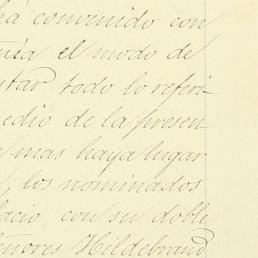 há convenido con
el modo de
tar todo lo referi
edio de la presen
mas haya lugar
, los nominados
lacio, con su doble
eñores Hildebrand